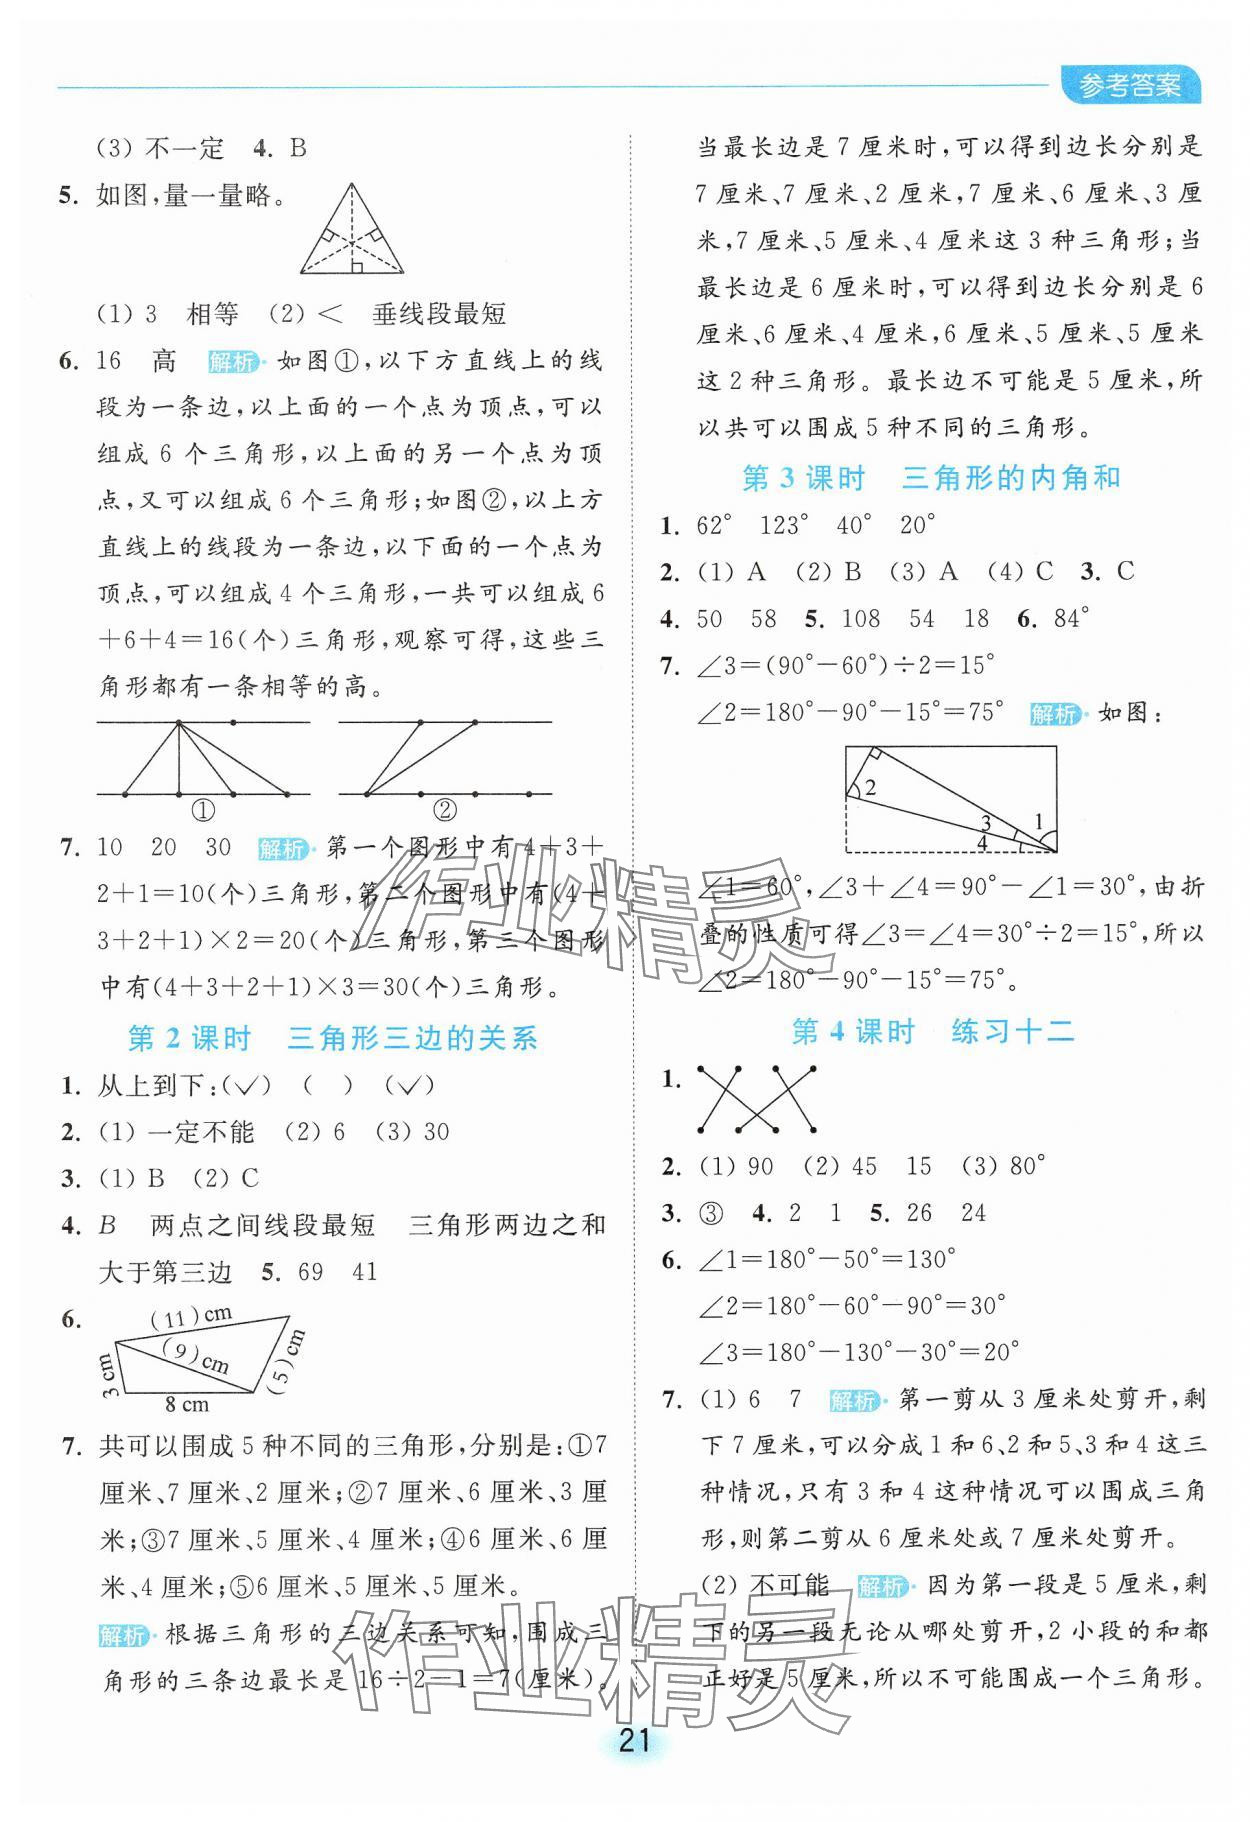 参考答案
(3) 不一定 4. B
5. 如图,量一量略。
(1) 3 相等 (2) < 垂线段最短
6. 16 高 解析·如图①,以下方直线上的线
段为一条边,以上面的一个点为顶点,可以
组成 6 个三角形,以上面的另一个点为顶
点,又可以组成 6 个三角形;如图②,以上方
直线上的线段为一条边,以下面的一个点为
顶点,可以组成 4 个三角形,一共可以组成 6
+6+4=16(个)三角形,观察可得,这些三
角形都有一条相等的高。
① ②
7. 10 20 30 解析·第一个图形中有 4+3+
2+1=10(个)三角形,第二个图形中有(4+
3+2+1)×2=20(个)三角形,第三个图形
中有(4+3+2+1)×3=30(个)三角形。
第 2 课时 三角形三边的关系
1. 从上到下:(✓) ( ) (✓)
2. (1) 一定不能 (2) 6 (3) 30
3. (1) B (2) C
4. B 两点之间线段最短 三角形两边之和
大于第三边 5. 69 41
6.
(11)cm
(9)cm
(5)cm
3 cm
8 cm
7. 共可以围成 5 种不同的三角形,分别是:①7
厘米、7 厘米、2 厘米;②7 厘米、6 厘米、3 厘
米;③7 厘米、5 厘米、4 厘米;④6 厘米、6 厘
米、4 厘米;⑤6 厘米、5 厘米、5 厘米。
解析·根据三角形的三边关系可知,围成三
角形的三条边最长是 16÷2-1=7(厘米)。
当最长边是 7 厘米时,可以得到边长分别是
7 厘米、7 厘米、2 厘米,7 厘米、6 厘米、3 厘
米,7 厘米、5 厘米、4 厘米这 3 种三角形;当
最长边是 6 厘米时,可以得到边长分别是 6
厘米、6 厘米、4 厘米,6 厘米、5 厘米、5 厘米
这 2 种三角形。最长边不可能是 5 厘米,所
以共可以围成 5 种不同的三角形。
第 3 课时 三角形的内角和
1. 62° 123° 40° 20°
2. (1) A (2) B (3) A (4) C 3. C
4. 50 58 5. 108 54 18 6. 84°
7. ∠3=(90°-60°)÷2=15°
∠2=180°-90°-15°=75° 解析·如图:
2
3
1
4
∠1=60°,∠3+∠4=90°-∠1=30°,由折
叠的性质可得∠3=∠4=30°÷2=15°,所以
∠2=180°-90°-15°=75°。
第 4 课时 练习十二
1.
2. (1) 90 (2) 45 15 (3) 80°
3. ③ 4. 2 1 5. 26 24
6. ∠1=180°-50°=130°
∠2=180°-60°-90°=30°
∠3=180°-130°-30°=20°
7. (1) 6 7 解析·第一剪从 3 厘米处剪开,剩
下 7 厘米,可以分成 1 和 6、2 和 5、3 和 4 这三
种情况,只有 3 和 4 这种情况可以围成三角
形,则第二剪从 6 厘米处或 7 厘米处剪开。
(2) 不可能 解析·因为第一段是 5 厘米,剩
下的另一段无论从哪处剪开,2 小段的和都
正好是 5 厘米,所以不可能围成一个三角形。
作业精灵
作业精灵
21